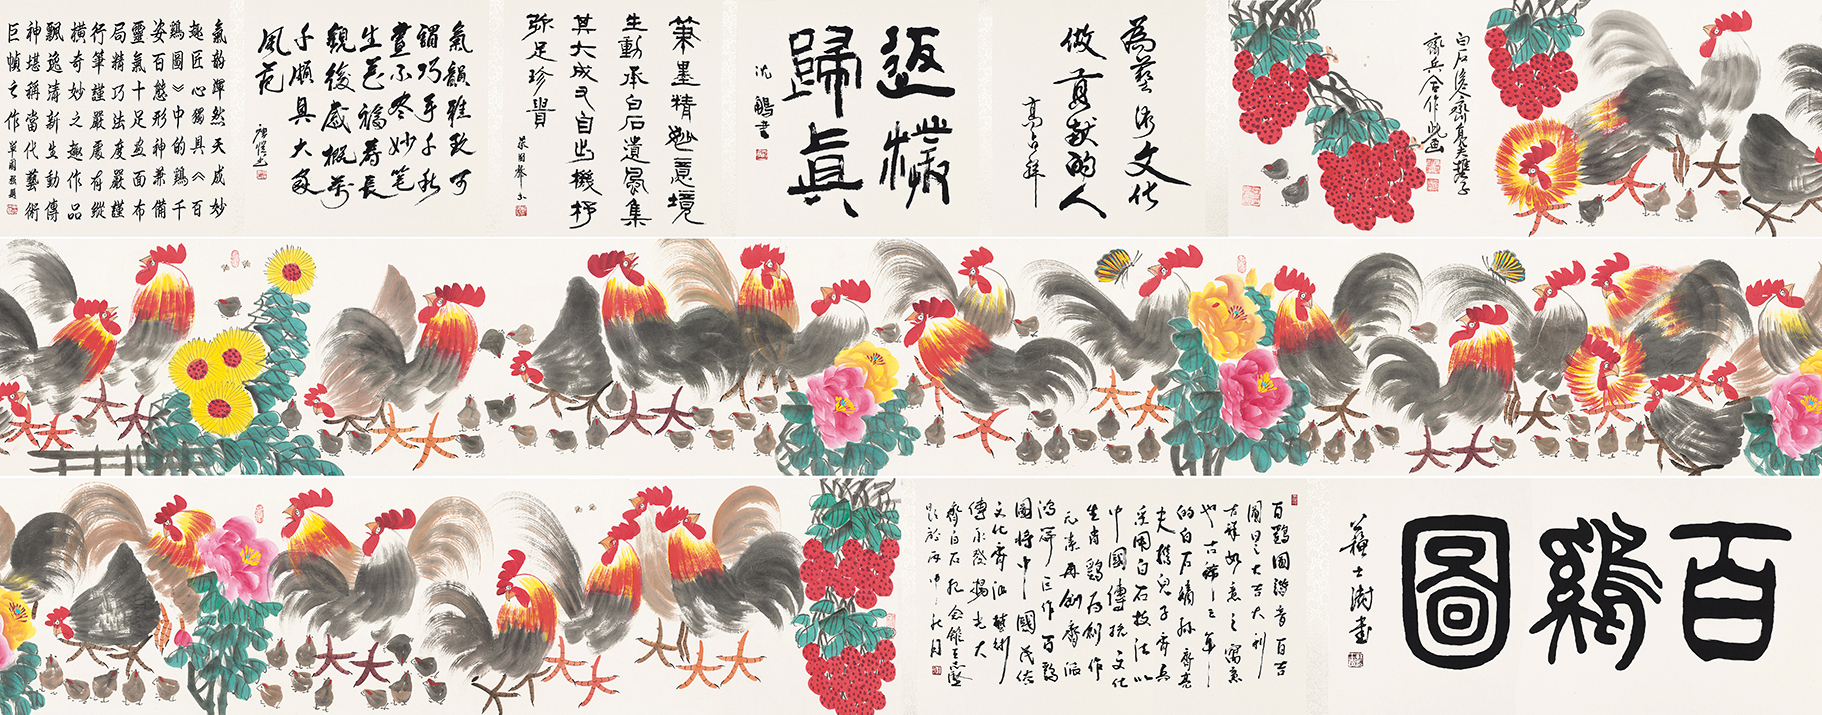 白石後裔齊亮夫攜子
齊兵合作此画
為藝術文化
做貢獻的人
高占祥
返樸
歸眞
沈鵬書
筆墨精妙意境
生動承白石遺風集
其大成又自出機杼
弥足珍貴
氣韻雅致可
謂巧手千秋
畫不盡妙笔
生花福壽長
觀後感概萬
千頗具大家
風范
氣韵渾然天成妙
趣匠心獨具《百
鷄圖》中的鷄千
姿百態形神兼備
靈氣十足畫面布
局精巧法度嚴謹
行筆謹嚴處有縱
橫奇妙之趣作品
飄逸清新生動傳
神堪稱當代藝術
巨幀之作 單國強題
百鷄圖
蘇士澍書
百鷄圖諧音百吉
圖日之大吉大利
吉祥如意之寓意
也古稀之年
的白石嫡孫齊亮
夫携兒子齊兵
采用白石技法以
中國傳統文化
生肖鷄为創作
元素再創齊派
鴻篇巨作百鷄
圖將中國民俗
文化齊派藝術
傳承發揚光大
齊白石紀念館王志堅
題於丙申秋月